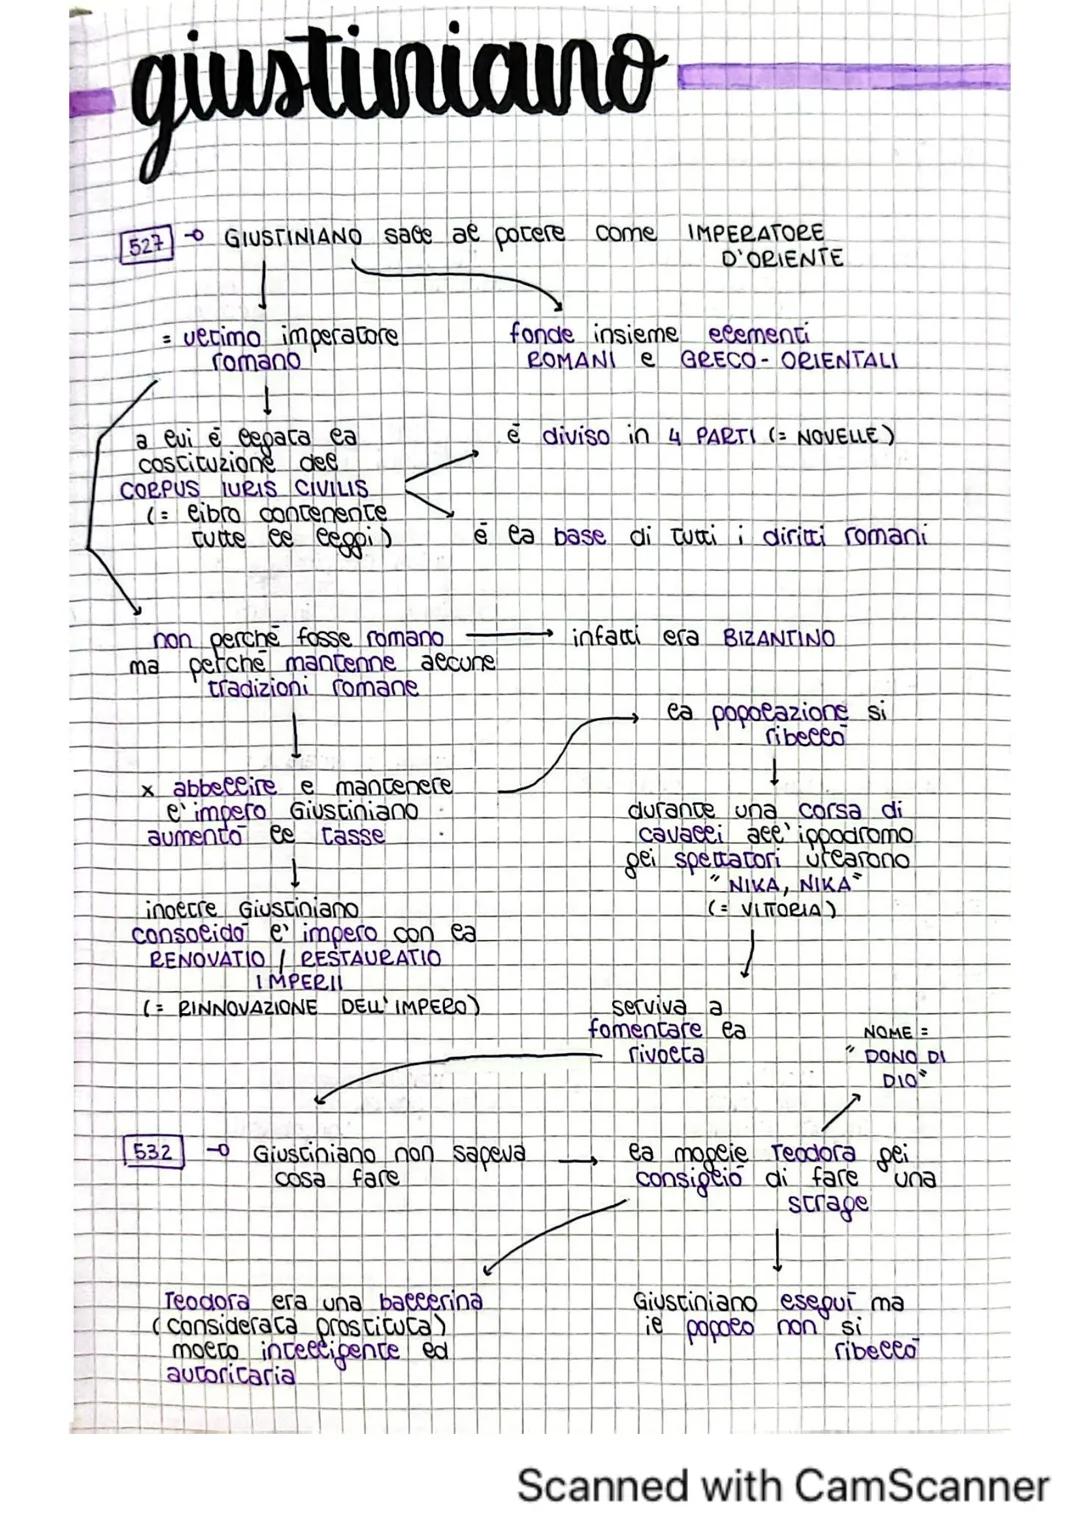 giustiniano
527 → GIUSTINIANO sale al potere come IMPERATORE
D'ORIENTE
= ultimo imperatore
romano
fonde insieme elementi
ROMANI e GRECO-ORIENTALI
a lui è legata la
costituzione del
CORPUS IURIS CIVILIS
(= libro contenente
tutte le leggi)
è diviso in 4 PARTI (= NOVELLE)
è la base di tutti i diritti romani
non perché fosse romano
ma perché mantenne alcune
tradizioni romane
infatti era BIZANTINO
x abbellire e mantenere
l'impero Giustiniano
aumentò le tasse
la popolazione si
ribellò
durante una corsa di
cavalli all'ippodromo
gli spettatori urlarono
"NIKA, NIKA"
(= VITTORIA)
inoltre Giustiniano
consolidò l'impero con la
RENOVATIO / RESTAURATIO
IMPERII
(= RINNOVAZIONE DELL'IMPERO)
serviva a
fomentare la
rivolta
NOME =
"DONO DI
DIO"
532 → Giustiniano non sapeva
cosa fare
la moglie Teodora gli
consigliò di fare una
strage
Teodora era una ballerina
(considerata prostituta)
molto intelligente ed
autoritaria
Giustiniano eseguì ma
il popolo non si
ribellò
Scanned with CamScanner